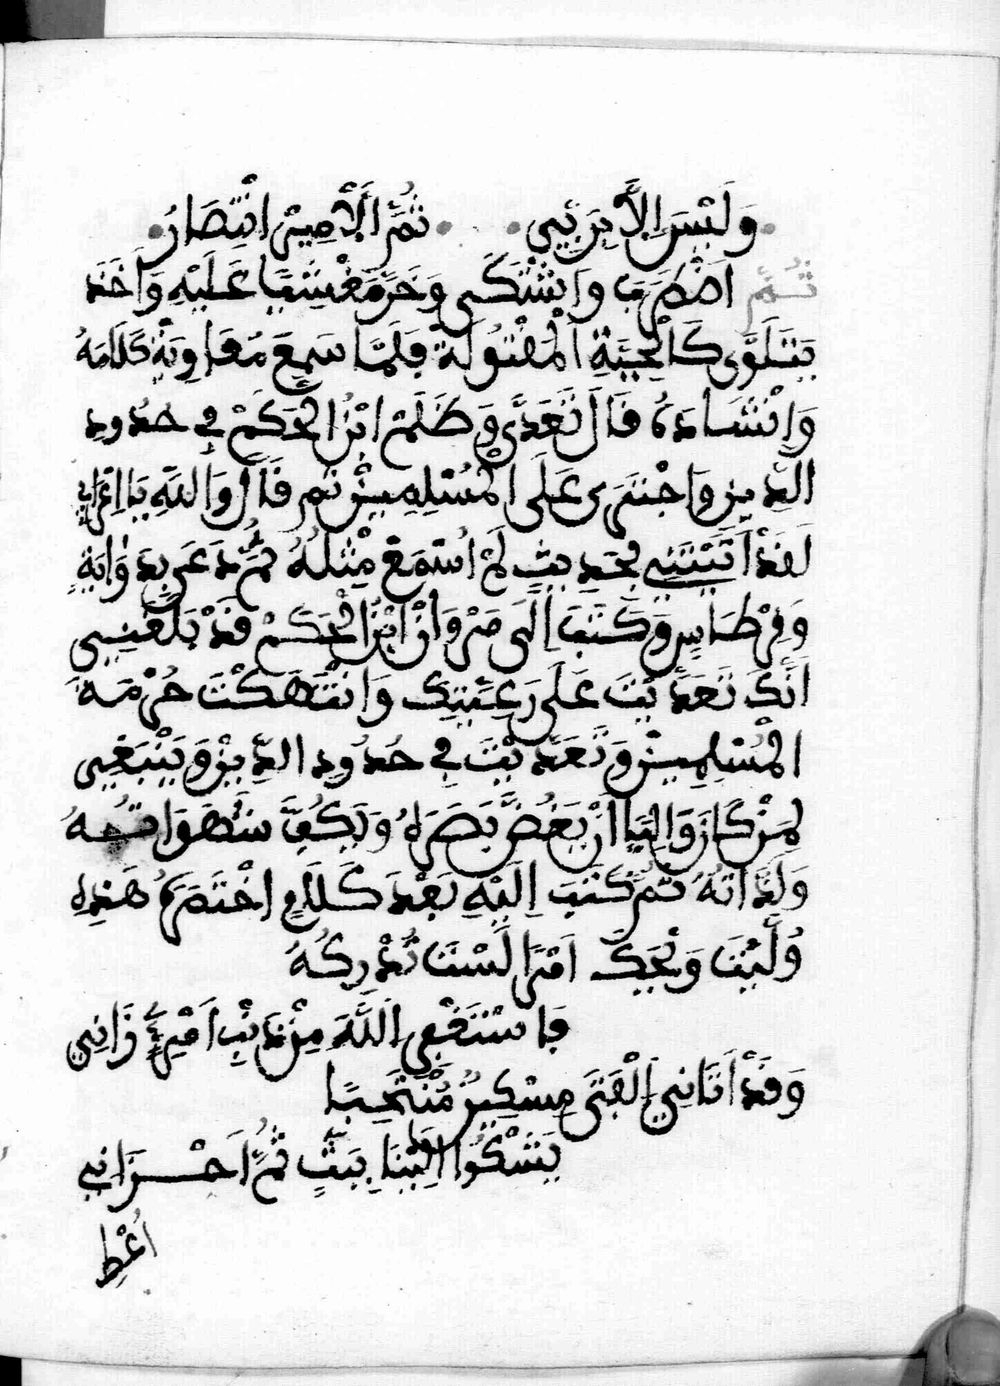 وَلَيْسَ إِلاَّ بِرَبِّي ثُمَّ الأَمِيرْ انْتِصَارُ
ثُمَّ اضْطَرَبَ وَاشْتَكَى وَخَرَّ مَغْشِيًّا عَلَيْهِ وَأَخَذَ
يَتَلَوَّى كَالْحَيَّةِ الْمَقْتُولَةْ فَلَمَّا سَمِعَ مُعَاوِيَةُ كَلَامَهُ
وَإِنْشَادَهُ قَالَ تَعَدَّى وَظَلَمْ ابْنُ الْحَكَمْ فِي حُدُودِ
الدِّينِ وَاجْتَرَى عَلَى الْمُسْلِمِينْ ثم قَالَ وَاللَّهِ يَا اعْرَابِي
لَقَدْ أَتَيْتَنِي بِحَدِيثٍ لَمْ اسْمَعْ مِثْلَهُ ثُمَّ دَعَى بِدَوَايَةٍ
وَقِرْطَاسٍ وَكَتَبَ إِلَى مَرْوَانْ ابْنُ الْحَكَمْ قَدْ بَلَغَنِي
انَّكَ تَعَدَّيْتَ عَلَى رَعِيَّتِكَ وَانْتَهَكْتَ حُرْمَةَ
الْمُسْلِمِينْ وَتَعَدَّيْتَ فِي حُدُودِ الدِّينْ وَيَنْبَغِي
لِمَنْ كَانَ وَالِيًا أَنْ يَغُضَّ بَصَرَهُ وَيَكُفَّ شَهَوَاتُهُ
وَلَذَّاتُهُ ثُمَّ كَتَبَ إِلَيْهِ بَعْدَ كَلَامٍ اخْتَصَرْتُهُ هَذِهِ
وُلِّيْتَ وَيْحَكَ امْرًا لَسْتَ تُدْرِكُهُ
فَاسْتَغْفِرِ اللَّهَ مِنْ ذَنْبِ امْرِئٍ زَانِي
وَقَدْ اَتَانِي الْفَتَى مِسْكِينٌ مُنْتَحِبًا
يَشْكُوا إِلَيْنَا بِبَثٍّ ثُمَّ أَحْزَانِي
اُعْطِ